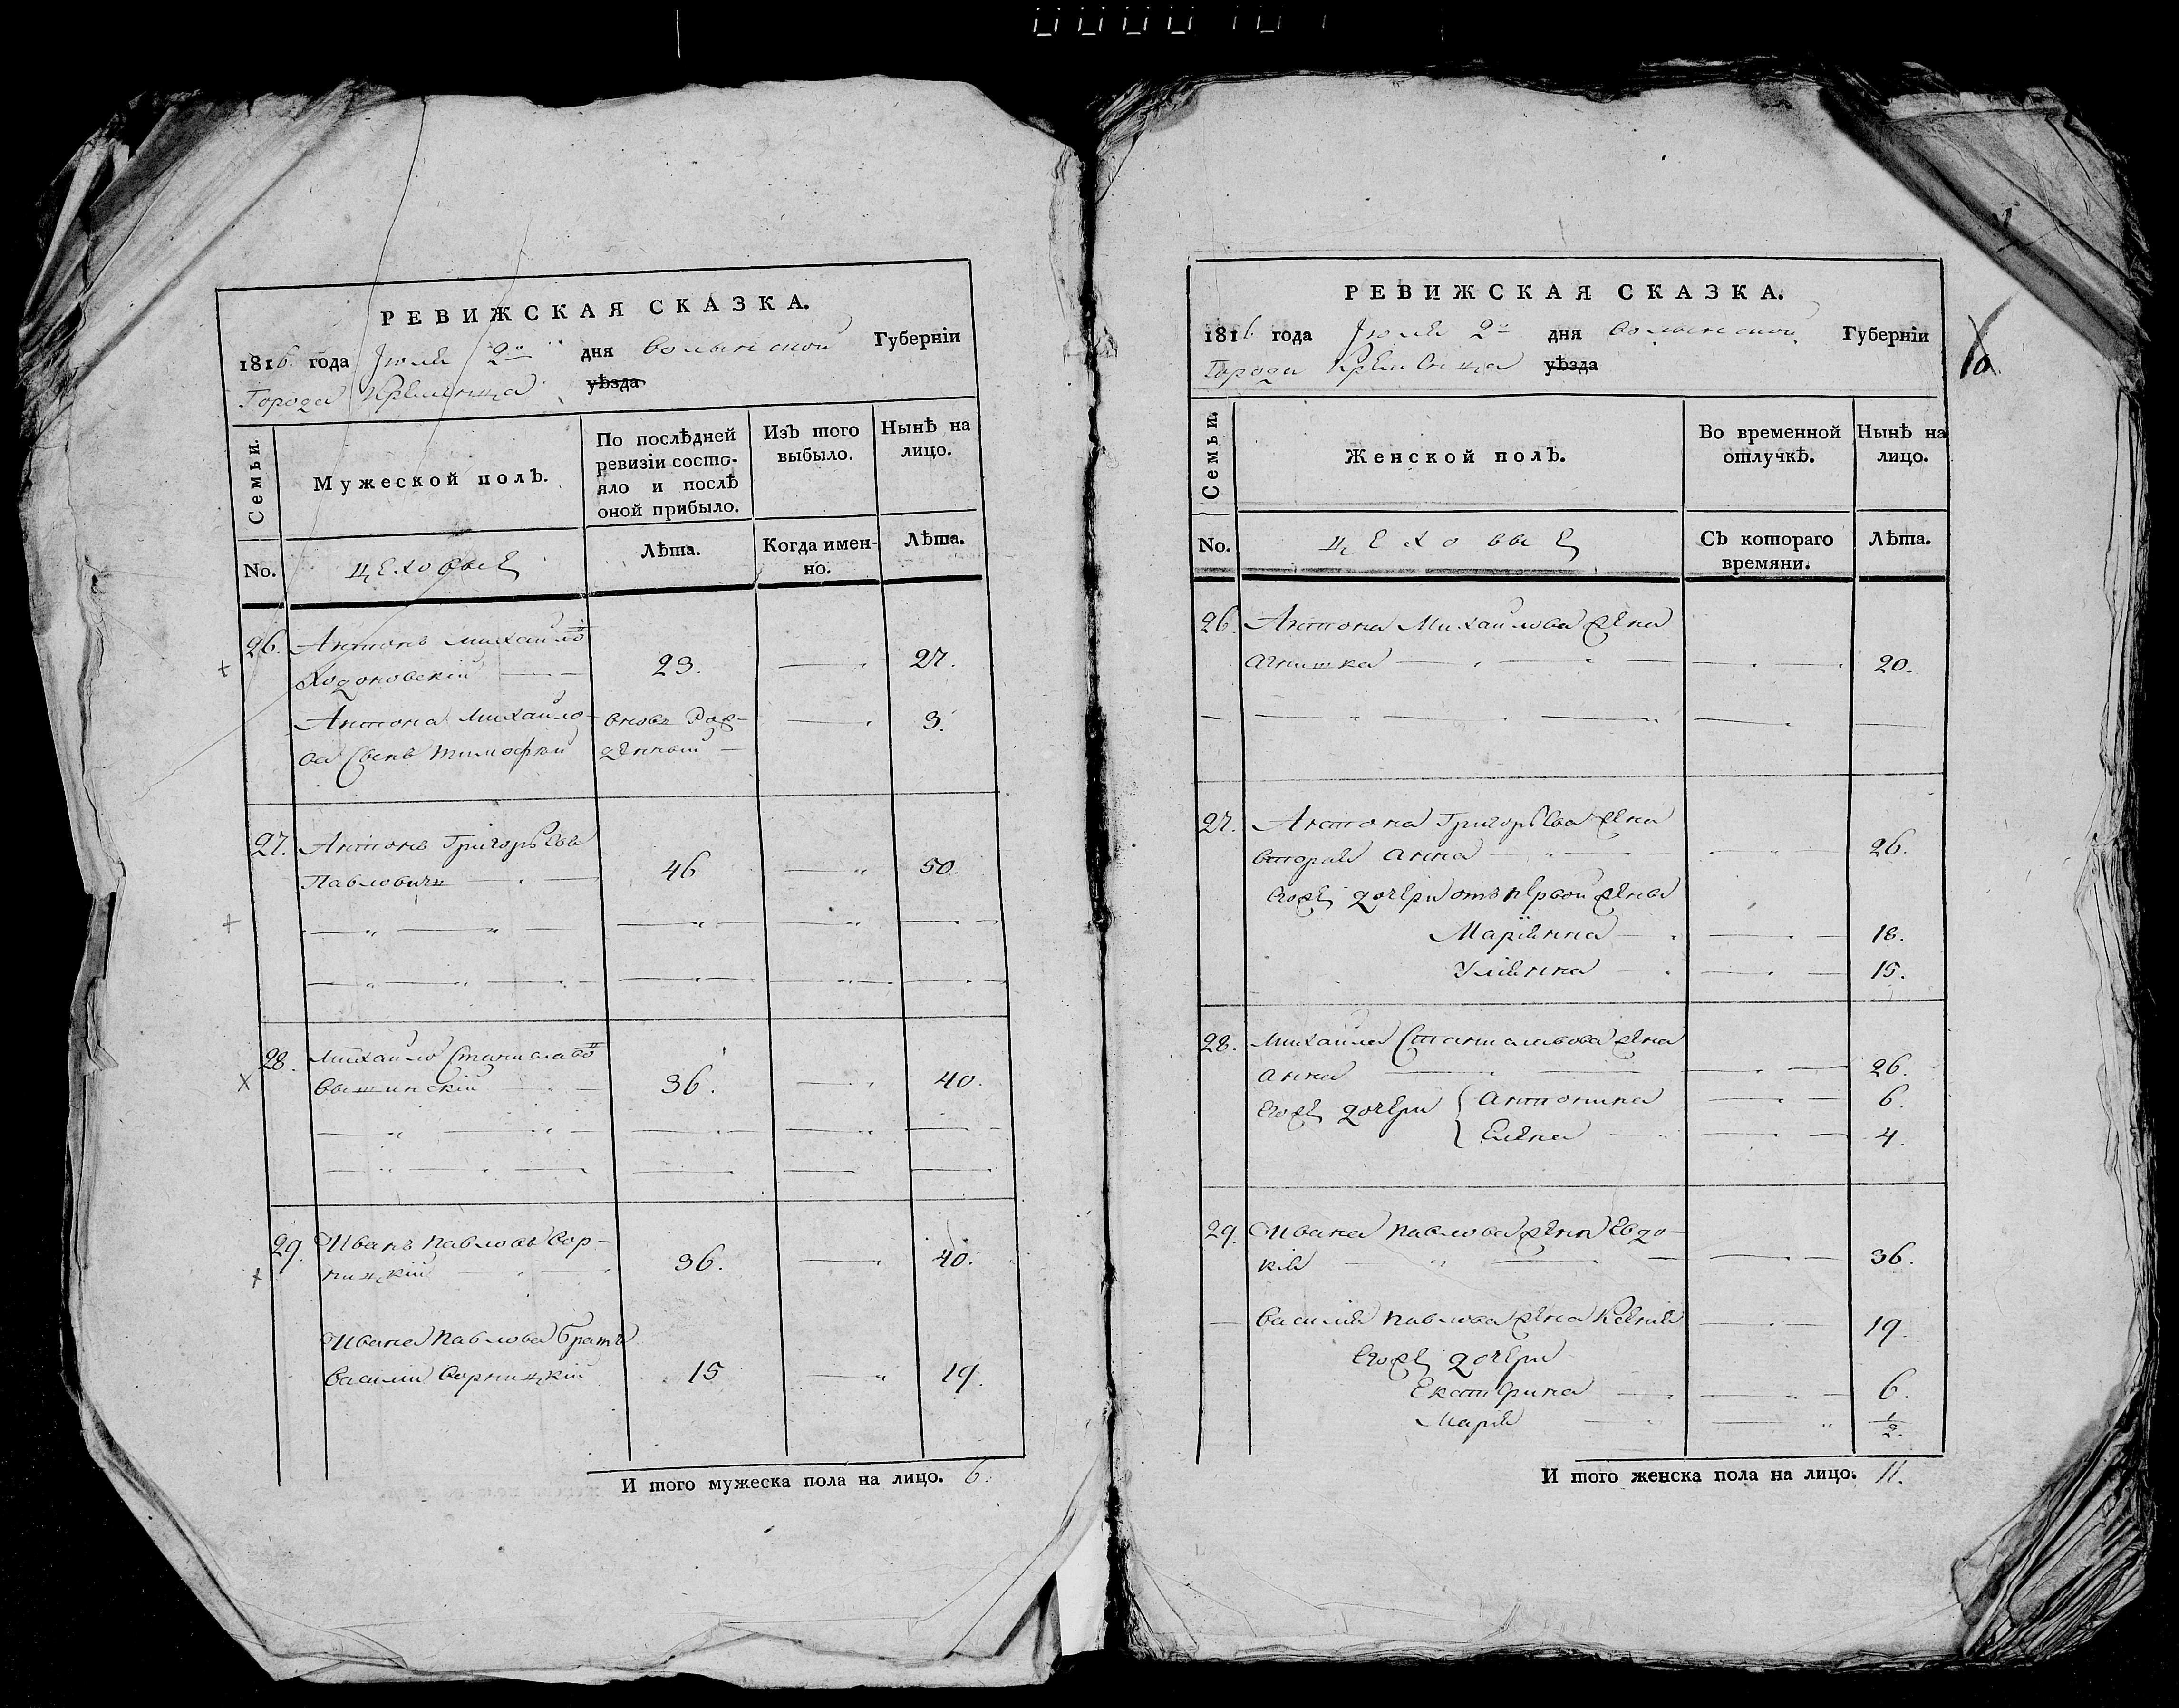 РЕВИЖСКАЯ СКАЗКА.
1816 года Іюля 2го дня Волынской Губерніи
Города Кременца уѣзда
Семьи.
Мужеской полъ.
По послѣдней ревизіи состояло и послѣ оной прибыло.
Изъ того выбыло.
Нынѣ на лицо.
No.
цеховые
Лѣта.
Когда именно.
Лѣта.
26. Антонъ Михайло
Ходоновскій 23. 27.
Антона Михайло-
ва Сынъ Тимофей вновь рож-
денный 3.
27. Антонъ Григорьевъ
Павловичъ 46 50.
28. Михайло Станиславо
Вышинскій 36. 40.
29. Иванъ Павловъ Вор-
ницкій 36. 40.
Ивана Павлова братъ
Василий Ворницкій 15 19.
И того мужеска пола на лицо. 6.
РЕВИЖСКАЯ СКАЗКА.
1816 года Іюля 2го дня Волынской Губерніи
Города Кременца уѣзда
10.
Семьи.
Женской полъ.
Во временной отлучкѣ.
Нынѣ на лицо.
No.
цеховые
Съ котораго времяни.
Лѣта.
26. Антона Михайлова жена
Агнишка 20.
27. Антона Григорьева жена
вторая Анна 26.
Его же дочери отъ первой жены
Маріянна 18.
Уліянна 15.
28. Михайла Станиславова жена
Анна 26.
Его же дочери Антонина 6.
Елена 4.
29. Ивана Павлова жена Евдо-
кія 36.
Василія Павлова жена Ксенія 19.
Его же дочери
Екатерина 6.
Марія 1/2.
И того женска пола на лицо. 11.